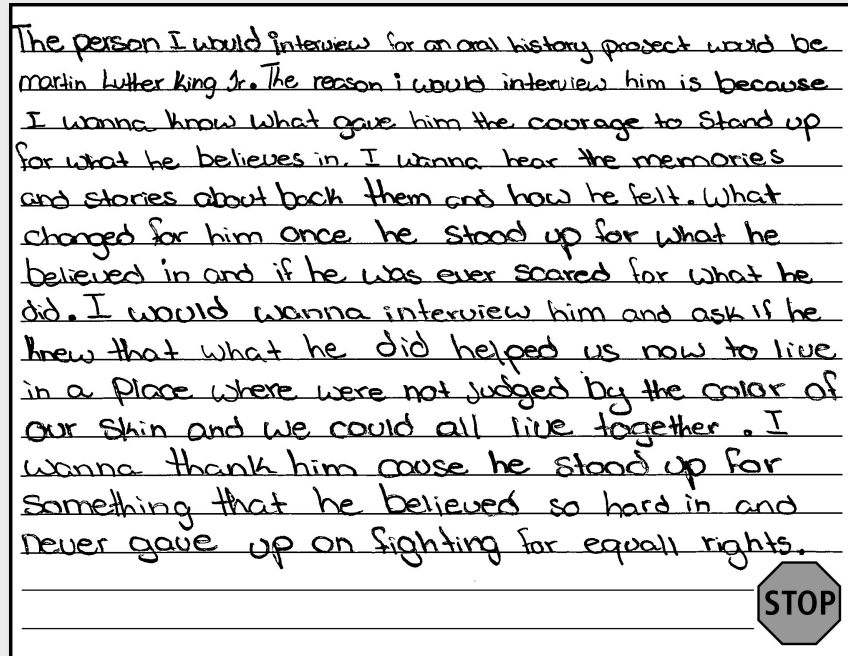 The person I would interview for an oral history project would be
martin Luther King Jr. The reason i would interview him is because
I wanna know what gave him the courage to stand up
for what he believes in. I wanna hear the memories
and stories about back them and how he felt. What
changed for him once he stood up for what he
believed in and if he was ever scared for what he
did. I would wanna interview him and ask if he
knew that what he did helped us now to live
in a place where were not judged by the color of
our skin and we could all live together. I
wanna thank him cause he stood up for
something that he believed so hard in and
never gave up on fighting for equall rights.
STOP